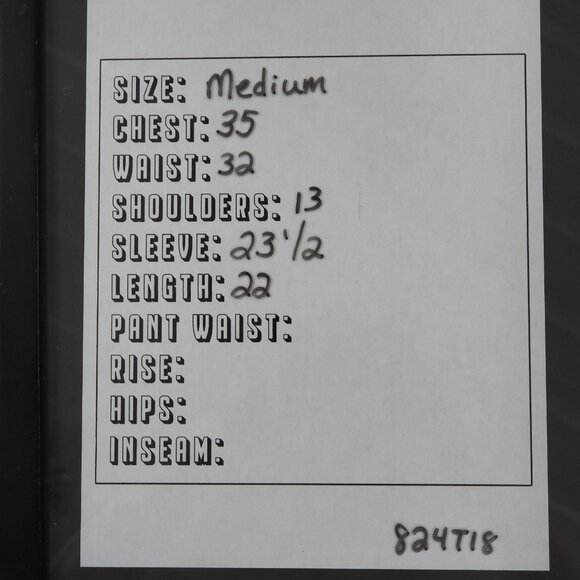 SIZE: Medium
CHEST: 35
WAIST: 32
SHOULDERS: 13
SLEEVE: 23 1/2
LENGTH: 22
PANT WAIST:
RISE:
HIPS:
INSEAM:
824T18